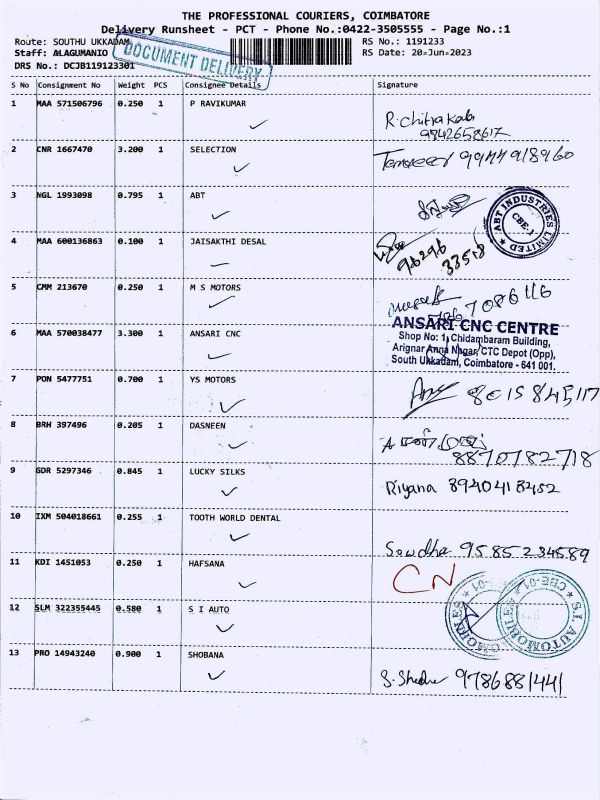 THE PROFESSIONAL COURIERS, COIMBATORE
Delivery Runsheet - PCT - Phone No.:0422-3505555 - Page No.:1
Route: SOUTHU UKKADAM
RS No.: 1191233
Staff: ALAGUMANIO
RS Date: 20-Jun-2023
DRS No.: DCJB119123301
DOCUMENT DELIVERY
S No Consignment No Weight PCS Consignee Details Signature
1 MAA 571506796 0.250 1 P RAVIKUMAR
R.chitrakala
9842658617
2 CNR 1667470 3.200 1 SELECTION
9944918960
3 NGL 1993098 0.795 1 ABT
ABT INDUSTRIES LIMITED
CBE-1
4 MAA 600136863 0.100 1 JAISAKTHI DESAL
96296
33518
5 CMM 213670 0.250 1 M S MOTORS
7086116
6 MAA 570038477 3.300 1 ANSARI CNC
ANSARI CNC CENTRE
Shop No: 1, Chidambaram Building,
Arignar Anna Nagar, CTC Depot (Opp),
South Ukkadam, Coimbatore - 641 001.
7 PON 5477751 0.700 1 YS MOTORS
8015845117
8 BRH 397496 0.205 1 DASNEEN
8870782718
9 GDR 5297346 0.845 1 LUCKY SILKS
Riyana 8940418452
10 IXM 504018661 0.255 1 TOOTH WORLD DENTAL
Sowdha 9585234589
11 KDI 1451053 0.250 1 HAFSANA
CN
12 SLM 322355445 0.580 1 S I AUTO
S.I. AUTOMOBILES
CBE-01
13 PRO 14943240 0.900 1 SHOBANA
9786881441